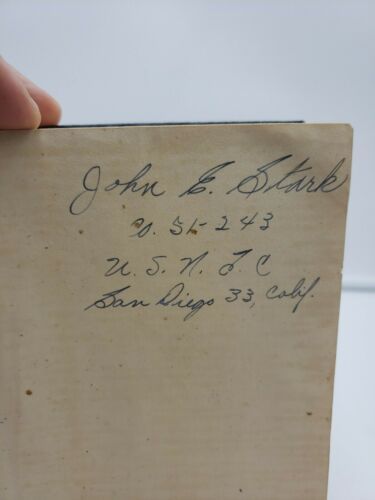 John E. Stark
Co. 51-243
U. S. N. T. C
San Diego 33, Calif.